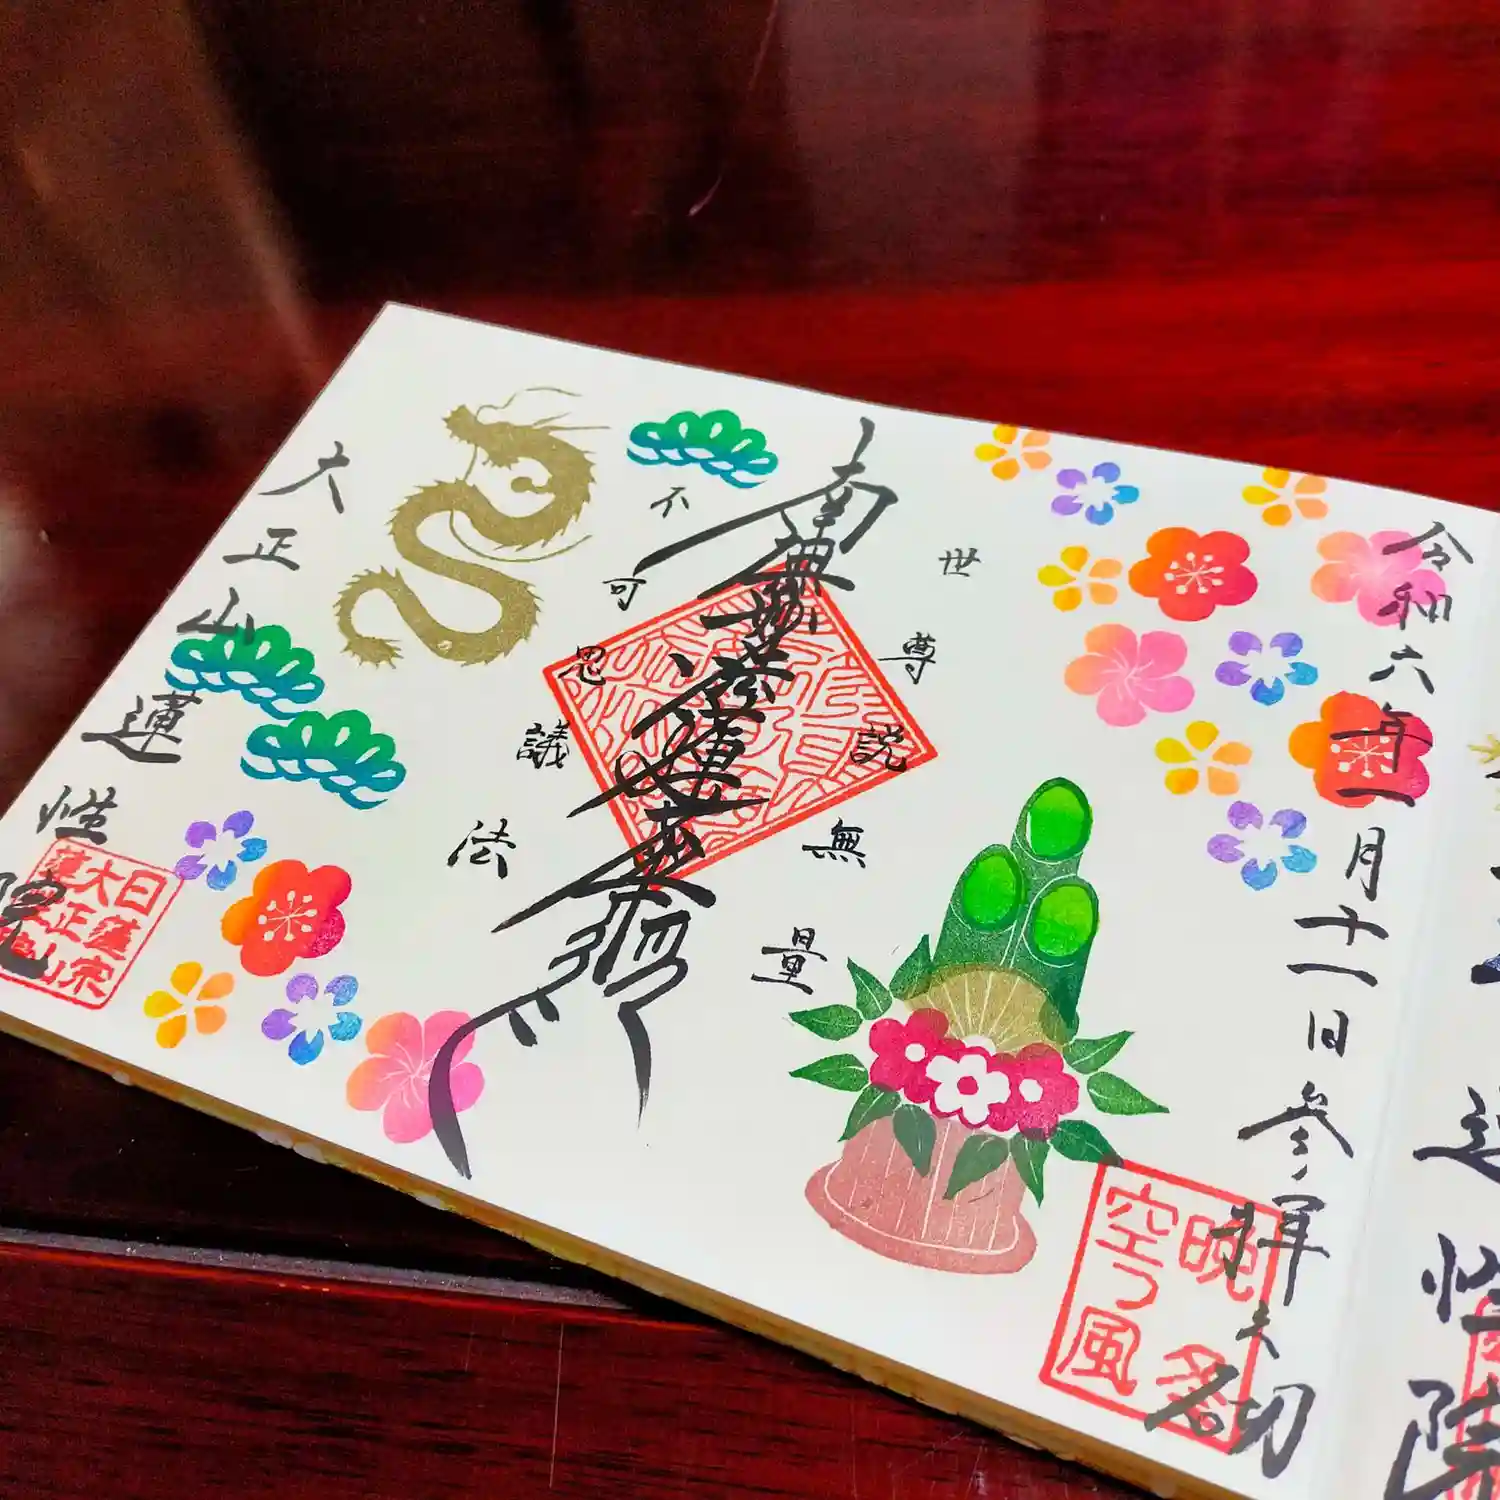 令和六年一月十一日参拝之砌
晩冬
空っ風
世尊説無量
南無妙法蓮華経
不可思議法
大正山蓮性院
日蓮宗
大正山
蓮性院
性院